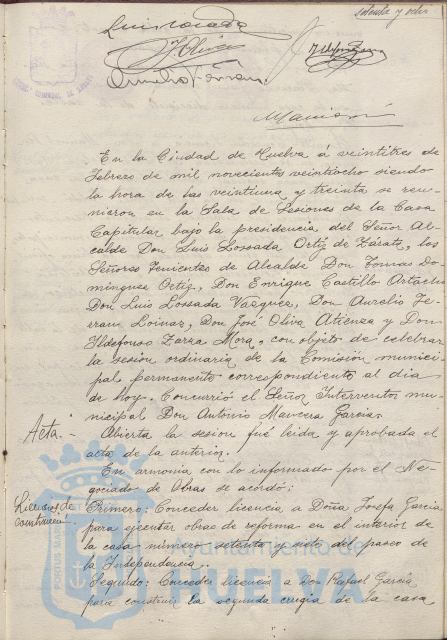 setenta y ocho
Luis Losada
J. Oliva
Aurelio Ferrán
En la Ciudad de Huelva á veintitres de
Febrero de mil novecientos veintiocho siendo
la hora de las veintiuna y treinta se reu-
nieron en la Sala de Sesiones de la Casa
Capitular bajo la presidencia del Señor Al-
calde Don Luis Lossada Ortiz de Zárate, los
Señores Tenientes de Alcalde Don Tomas Do-
minguez Ortiz, Don Enrique Castillo Artacho
Don Luis Lossada Vazquez, Don Aurelio Fe-
rran Loinaz, Don José Oliva Atienza y Don
Ildefonso Zarra Mora, con objeto de celebrar
la sesion ordinaria de la Comisión munici-
pal permanente correspondiente al dia
de hoy. Concurrió el Señor Interventor mu-
nicipal Don Antonio Mancera Garcia.
Acta.- Abierta la sesion fué leida y aprobada el
acta de la anterior.
En armonia con lo informado por el Ne-
gociado de Obras se acordó:
Licencias de
construccion
Primero: Conceder licencia a Doña Josefa Garcia
para ejecutar obras de reforma en el interior de
la casa número setenta y siete del paseo de
la Independencia.
Segundo: Conceder licencia a Don Rafael Garcia
para construir la segunda crugia de la casa
Ayuntamiento de
HUELVA
PORTUS MARIS